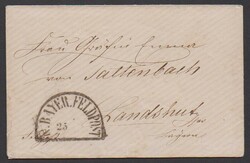 Frau Gräfin Emma
von Tattenbach
Landshut
K. BAYER. FELDPOST
25
Bayern